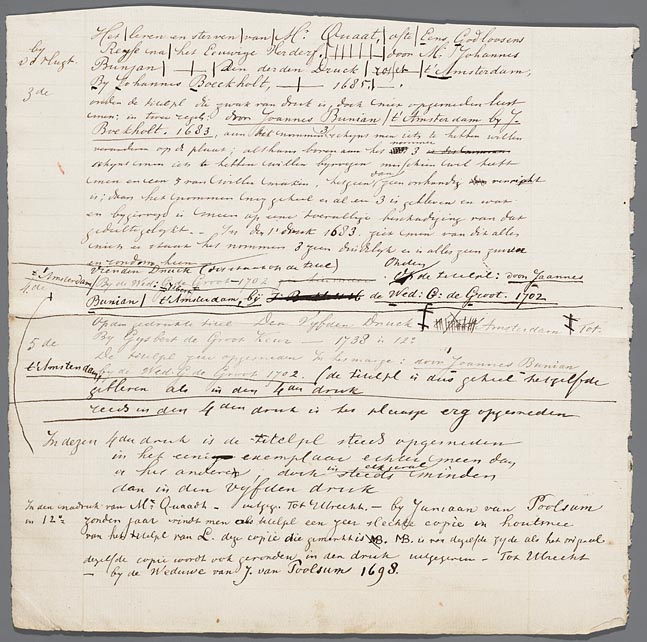 Het leven en sterven van Mr. Quaat, ofte Eens Godloosens
bij Reyse na het Eeuwige Verderf, door Mr. Johannes
Bunjan Den derden Druck t'Amsterdam,
3de By Johannes Boeckholt, 1685.
onder de titelpl die zwak van druk is, doch niet opgesneden leest
men: in twee regels door Joannes Bunian / t'Amsterdam by J.
Boekholt. 1683, aan het nummer 3 schijnt men iets te hebben willen
veranderen op de plaat; althans boven aan het nommer 3
schijnt men iets te hebben willen bijvoegen misschien wel heeft
men een 5 van willen maken, hetgeen dan zeer onhandig verricht
is; daar het nommer nog geheel es al een 3 is gebleven en wat
er bijgevoegd is meer op eene toevallige beschadiging van dat
gedeelte gelijkt. - In den 1e druck 1683 ziet men van dit alles
niets er staat het nommer 3 zeer duidelijk er is alles zeer zuiver
en rondom heen
t'Amsterdam Vierden Druck (dit staat op de titel) Onder
4de By de Wed: G. de Groot - 1702 op de titelpl: door Joannes
Bunian / t'Amsterdam, bij de Wed: G: de Groot. 1702
Op den gedrukte titel Den Vyfden Druck Amsterdam Tot
By Gysbert de Groot Keur - 1738 in 12o
5 de De titelpl zeer opgesneden door Joannes Bunian
t'Amsterdam bij de Wed. G de Groot 1702 (de titelpl is dus geheel hetzelfde
gebleven als in den 4den druk
reeds in den 4den druk is het plaatje erg opgesneden
In dezen 4den druk is de titelpl steeds opgesneden
in het eene exemplaar echter meer dan
in het andere, doch in elk geval steeds minder
dan in den vijfden druk
In den nadruk van Mr Quaadt - uitgegn. Tot Utrecht. - by Juriaan van Poolsum
in 12o zonder jaar vindt men als titelpl een zeer slechte copie in houtsnee
van het titelpl van L. deze copie die gemerkt is NB. NB. is van dezelfde zijde als het origineel
dezelfde copie wordt ook gevonden in den druk uitgegeven - Tot Utrecht
- by de Weduwe van J. van Poolsum 1698.